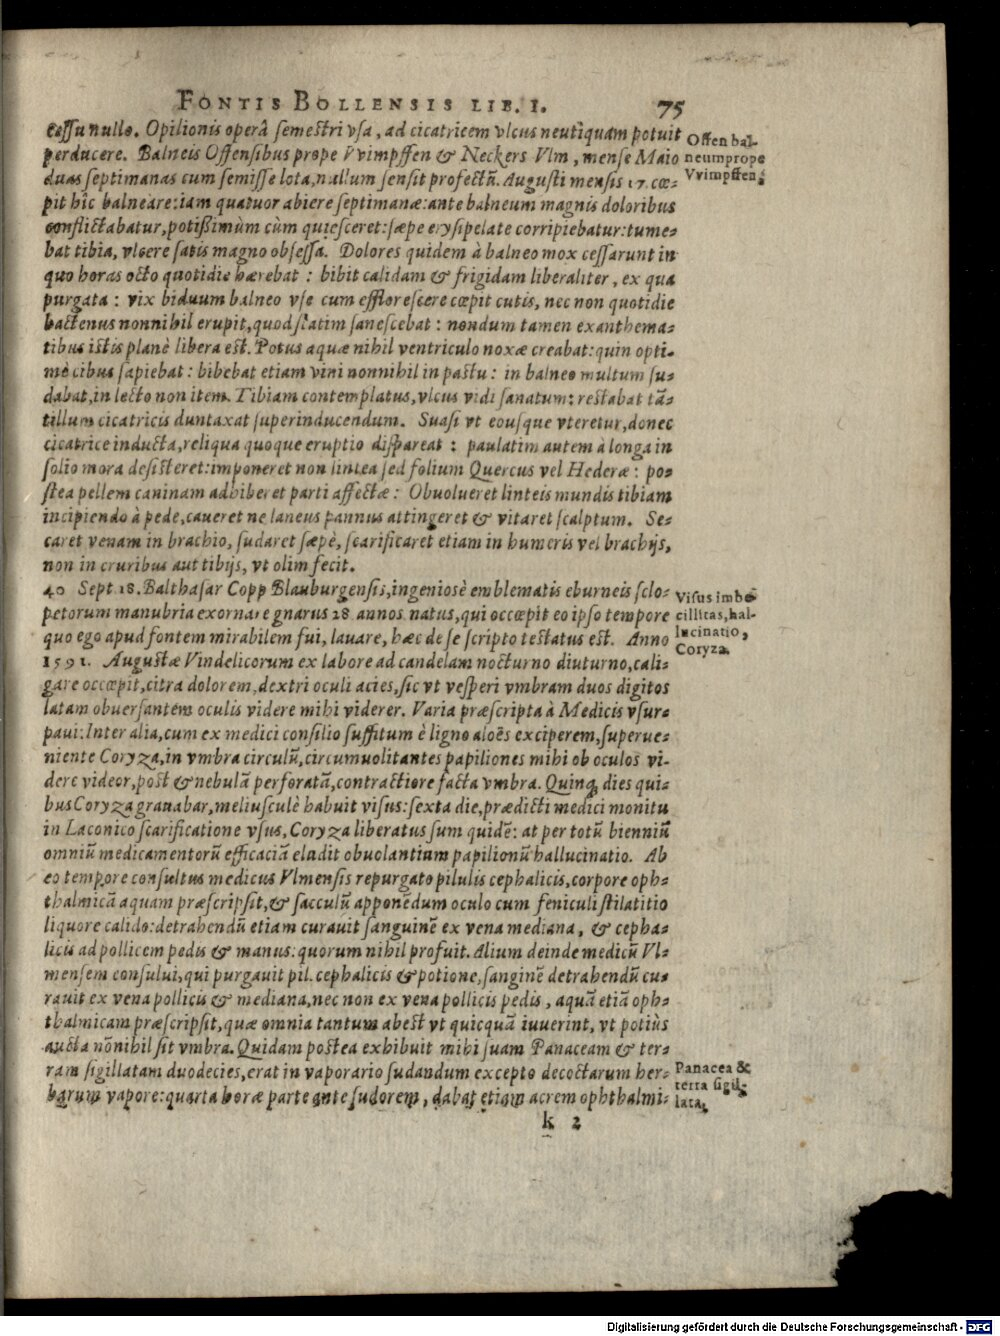 FONTIS BOLLENSIS LIB. I. 75
cessu nullo. Opilionis operâ semestri vsa, ad cicatricem vlcus neutiquam potuit
perducere. Balneis Offensibus prope VVimpffen & Neckers Vlm, mense Maio
duas septimanas cum semisse lota, nullum sensit profectũ. Augusti mensis 17. cœ-
pit hîc balneare: iam quatuor abiere septimanæ: ante balneum magnis doloribus
conflictabatur, potißimùm cùm quiesceret: sæpe erysipelate corripiebatur: tume-
bat tibia, vlcere satis magno obsessa. Dolores quidem à balneo mox cessarunt in
quo horas octo quotidie hærebat : bibit calidam & frigidam liberaliter, ex qua
purgata : vix biduum balneo vse cum efflorescere cœpit cutis, nec non quotidie
hactenus nonnihil erupit, quod statim sanescebat : nondum tamen exanthema-
tibus istis planè libera est. Potus aquæ nihil ventriculo noxæ creabat: quin opti-
mè cibus sapiebat : bibebat etiam vini nonnihil in pastu : in balneo multum su-
dabat, in lecto non item. Tibiam contemplatus, vlcus vidi sanatum: restabat tã-
tillum cicatricis duntaxat superinducendum. Suasi vt eousque vteretur, donec
cicatrice inducta, reliqua quoque eruptio dispareat : paulatim autem à longa in
solio mora desisteret: imponeret non lintea sed folium Quercus vel Hederæ : po-
stea pellem caninam adhiberet parti affectæ : Obuolueret linteis mundis tibiam
incipiendo à pede, caueret ne laneus pannus attingeret & vitaret scalptum. Se-
caret venam in brachio, sudaret sæpè, scarificaret etiam in humeris vel brachijs,
non in cruribus aut tibijs, vt olim fecit.
40 Sept. 18. Balthasar Copp Blauburgensis, ingeniosè emblematis eburneis sclo-
petorum manubria exornare gnarus 28 annos natus, qui occœpit eo ipso tempore
quo ego apud fontem mirabilem fui, lauare, hæc de se scripto testatus est. Anno
1591. Augustæ Vindelicorum ex labore ad candelam nocturno diuturno, cali-
gare occœpit, citra dolorem, dextri oculi acies, sic vt vesperi vmbram duos digitos
latam obuersantem oculis videre mihi viderer. Varia præscripta à Medicis vsur-
paui: Inter alia, cum ex medici consilio suffitum è ligno aloës exciperem, superue-
niente Coryza, in vmbra circulũ, circumuolitantes papiliones mihi ob oculos vi-
dere videor, post & nebulã perforatã, contractiore facta vmbra. Quinq; dies qui-
bus Coryza grauabar, meliusculè habuit visus: sexta die, prædicti medici monitu
in Laconico scarificatione vsus, Coryza liberatus sum quidẽ: at per totũ bienniũ
omniũ medicamentorũ efficaciã eludit obuolantium papilionũ hallucinatio. Ab
eo tempore consultus medicus Vlmensis repurgato pilulis cephalicis, corpore oph-
thalmicã aquam præscripsit, & sacculũ apponẽdum oculo cum feniculi stilatitio
liquore calido: detrahendũ etiam curauit sanguinẽ ex vena mediana, & cepha-
licis ad pollicem pedis & manus: quorum nihil profuit. Alium deinde medicũ Vl-
mensem consului, qui purgauit pil. cephalicis & potione, sanginẽ detrahendũ cu-
rauit ex vena pollicis & mediana, nec non ex vena pollicis pedis, aquã etiã oph-
thalmicam præscripsit, quæ omnia tantum abest vt quicquã iuuerint, vt potiùs
aucta nõnihil sit vmbra. Quidam postea exhibuit mihi suam Panaceam & ter-
ram sigillatam duodecies, erat in vaporario sudandum excepto decoctarum her-
barum vapore: quarta horæ parte ante sudorem, dabat etiam acrem ophthalmi-
k 2
Offen bal-
neum prope
VVimpffen.
Visus imbe-
cillitas, hal-
lucinatio,
Coryza.
Panacea &
terra sigil-
lata.
Digitalisierung gefördert durch die Deutsche Forschungsgemeinschaft - DFG